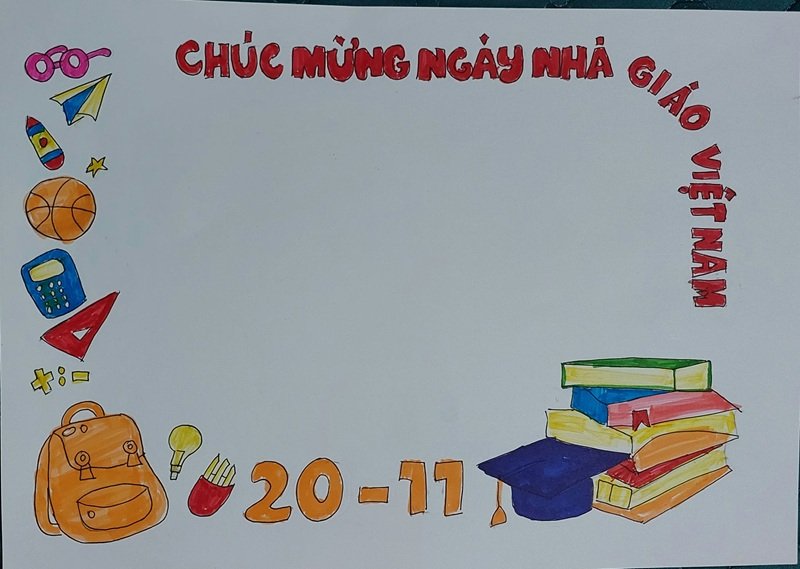 CHÚC MỪNG NGÀY NHÀ GIÁO VIỆT NAM
20-11